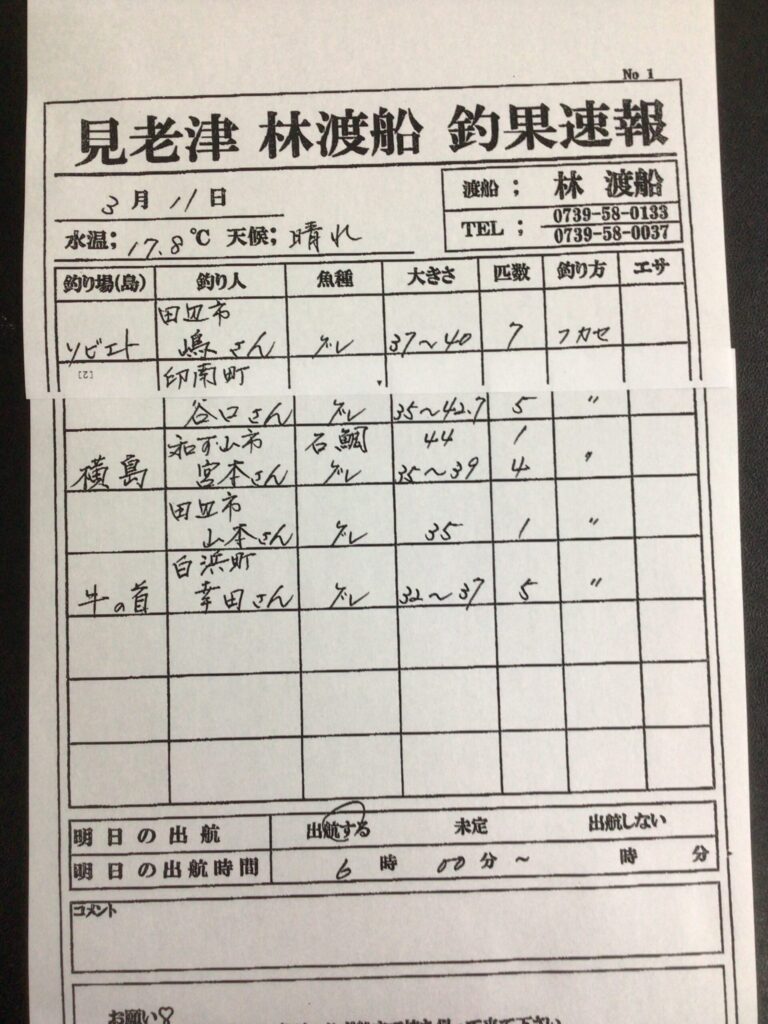 No 1
見老津 林渡船 釣果速報
3月 11日
渡船; 林 渡船
水温; 17.8℃ 天候; 晴れ
TEL; 0739-58-0133
0739-58-0037
釣り場(島) 釣り人 魚種 大きさ 匹数 釣り方 エサ
田辺市
ソビエト 嶋さん グレ 37〜40 7 フカセ
[2] 印南町
谷口さん グレ 35〜42.7 5 〃
和歌山市 石鯛 44 1
横島 宮本さん グレ 35〜39 4 〃
田辺市
山本さん グレ 35 1 〃
白浜町
牛の首 幸田さん グレ 32〜37 5 〃
明日の出航 出航する 未定 出航しない
明日の出航時間 6時 00分〜 時 分
コメント
お願い♡